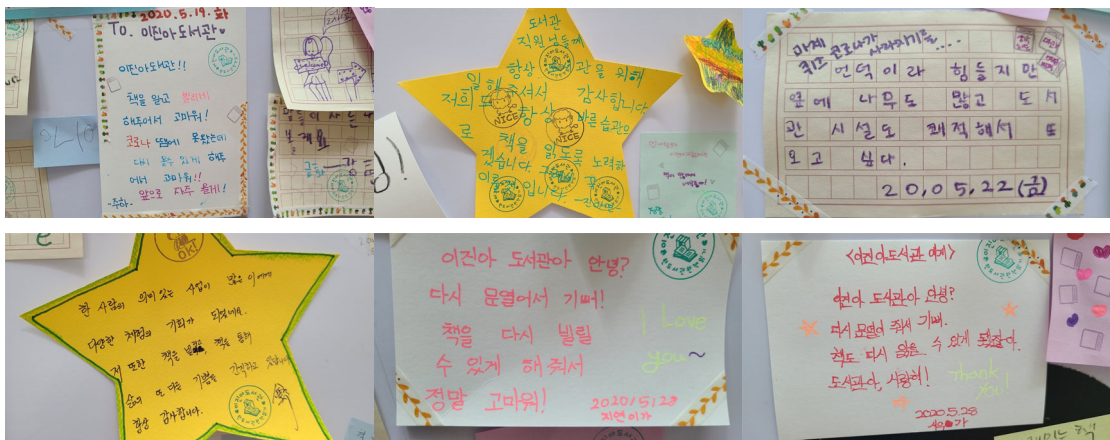 2020.5.19.화
To. 이진아도서관
이진아도서관!!
책을 읽고 빌리게!
해주어서 고마워!
코로나 때문에 못왔는데
다시 올수 있게 해주
어서 고마워!!
앞으로 자주 올게!
-주하-
도서관
직원분들께
항상 도서관을 위해
일해 주셔서 감사합니다
저희도 항상 바른 습관으
로 책을 읽도록 노력하
겠습니다.
NICE
NICE
마계
퀴즈 코로나가 사라지기를....
언덕이라 힘들지만
옆에 나무도 많고 도서
관 시설도 쾌적해서 또
오고 싶다.
20.05.22(금)
OK!
한 사람의 의미 있는 사업이 많은 이에게
다양한 체험의 기회가 되었네요.
저 또한 책을 책을 통해
삶의 또 다른 기쁨을 간직하고
항상 감사합니다.
이진아 도서관아 안녕?
다시 문열어서 기뻐!
책을 다시 빌릴
수 있게 해줘서
정말 고마워!
I Love
you~
2020.5.28
지연이가
<이진아도서관에게>
이진아 도서관아 안녕?
다시 문열어 줘서 기뻐.
책도 다시 읽을 수 있게 됐잖아.
도서관아, 사랑해!
Thank
You!
2020.5.28